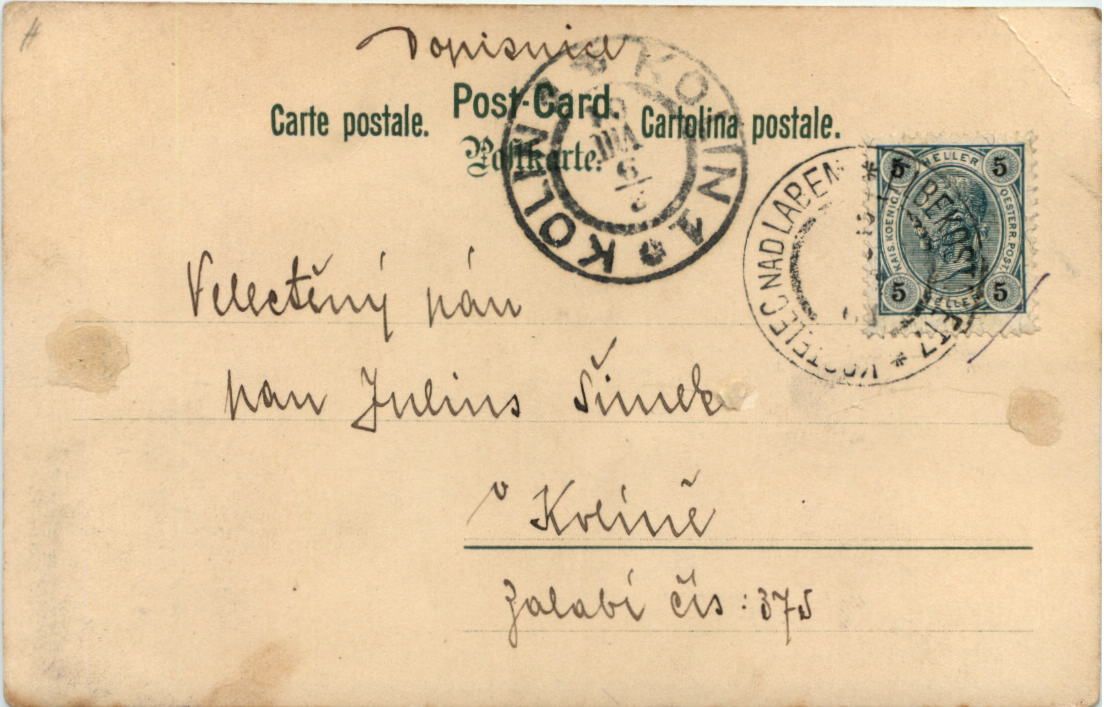 Dopisnice
Carte postale. Post-Card. Cartolina postale.
Postkarte.
KOLIN 1 KOLÍN
KOSTELEC NAD LABEM
ELBEKOST
5 HELLER 5
KAIS. KOENIG. OESTERR. POST.
5 HELLER 5
Velectěný pán
pan Julius Šimek
v Kolíně
Zalabí čís: 375